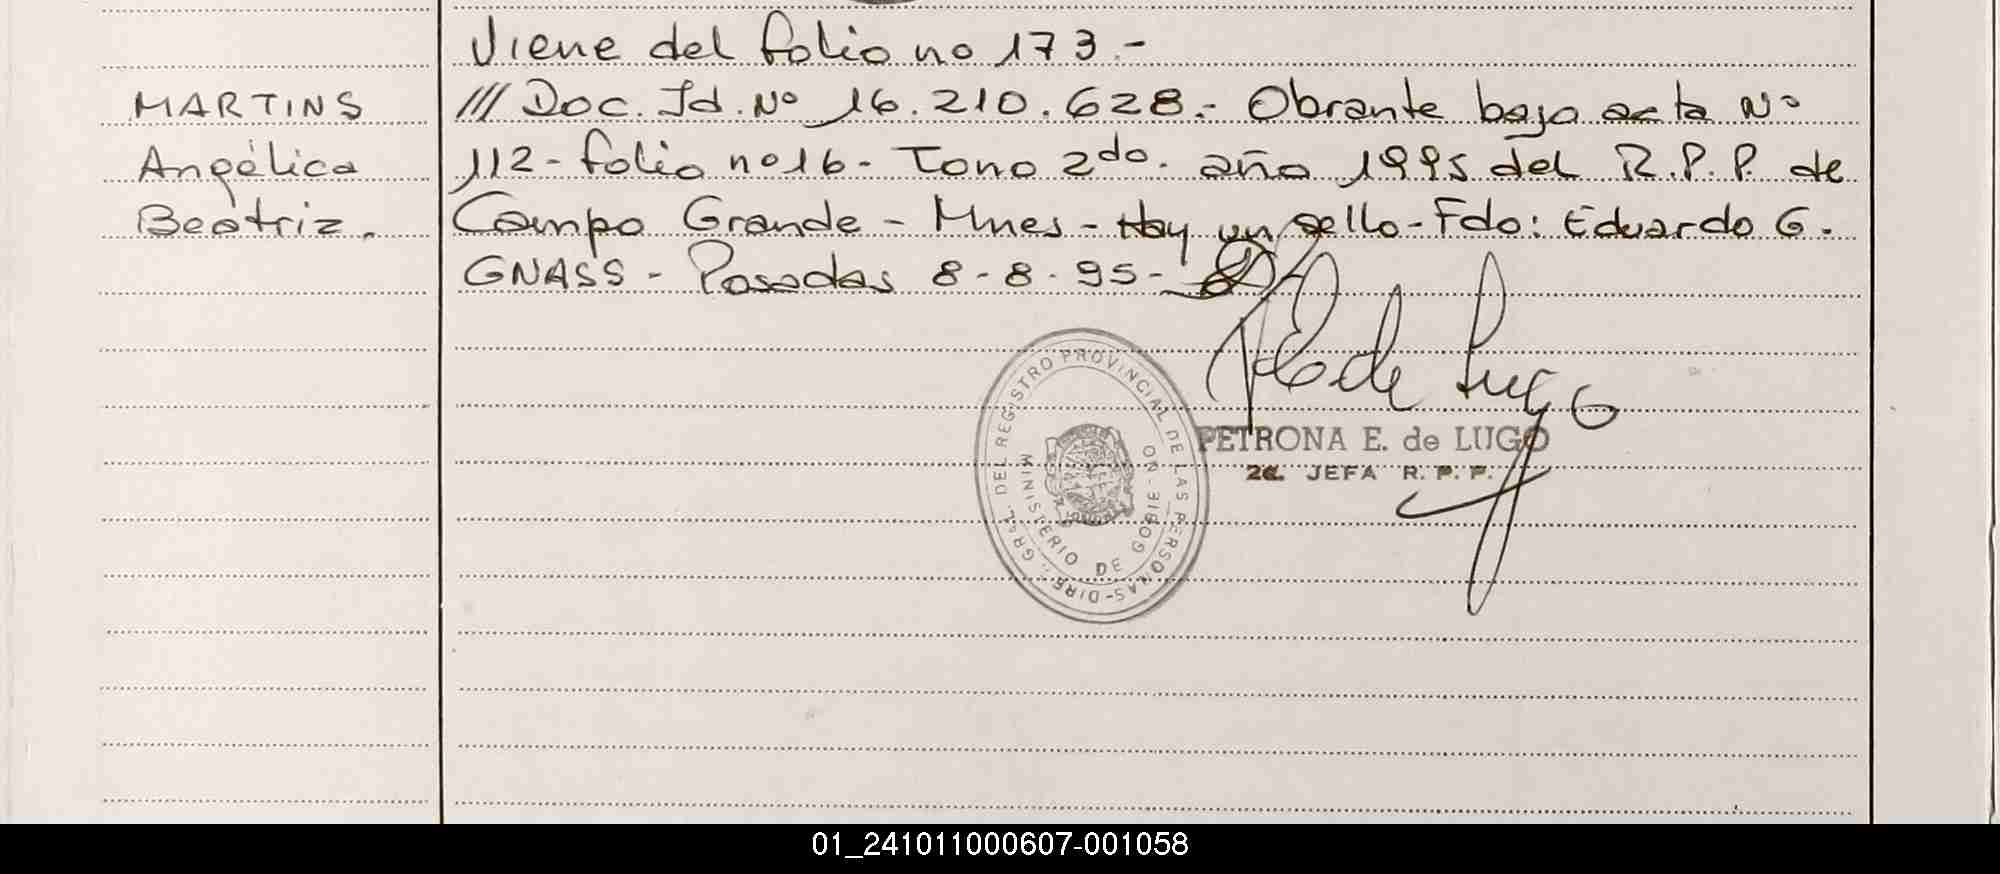 Viene del folio no 173.-
MARTINS
Angélica
Beatriz.
/// Doc. Id. Nº 16.210.628.- Obrante bajo acta Nº
112 - folio nº 16 - Tomo 2do. año 1995 del R.P.P. de
Campo Grande - Mnes - Hay un sello - Fdo: Eduardo G.
GNASS - Posadas 8-8-95-
de Lugo
PETRONA E. de LUGO
2a. JEFA R. P. P.
DIRE. GRAL. DEL REGISTRO PROVINCIAL DE LAS PERSONAS-
MINISTERIO DE GOBIE-NO
01_241011000607-001058